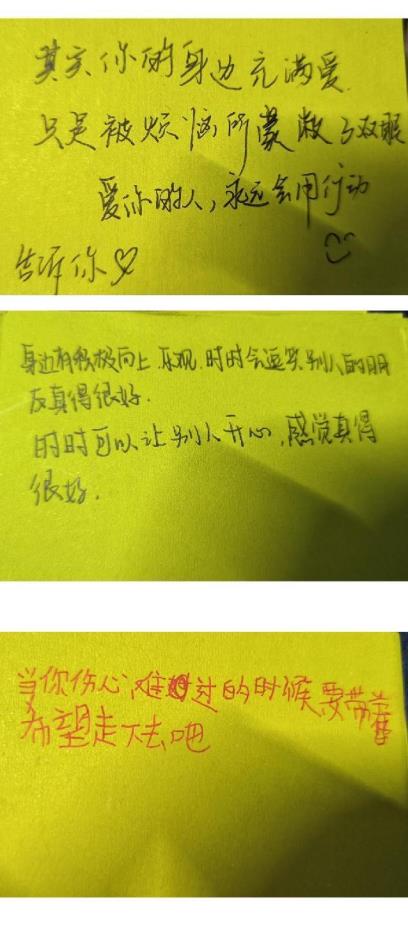 其实你的身边充满爱
只是被烦恼所蒙敝了双眼
爱你的人，永远会用行动
告诉你♡
身边有积极向上 乐观，时时会逗笑别人的朋
友真得很好.
时时可以让别人开心，感觉真得
很好.
当你伤心难过的时候，要带着
希望走下去吧